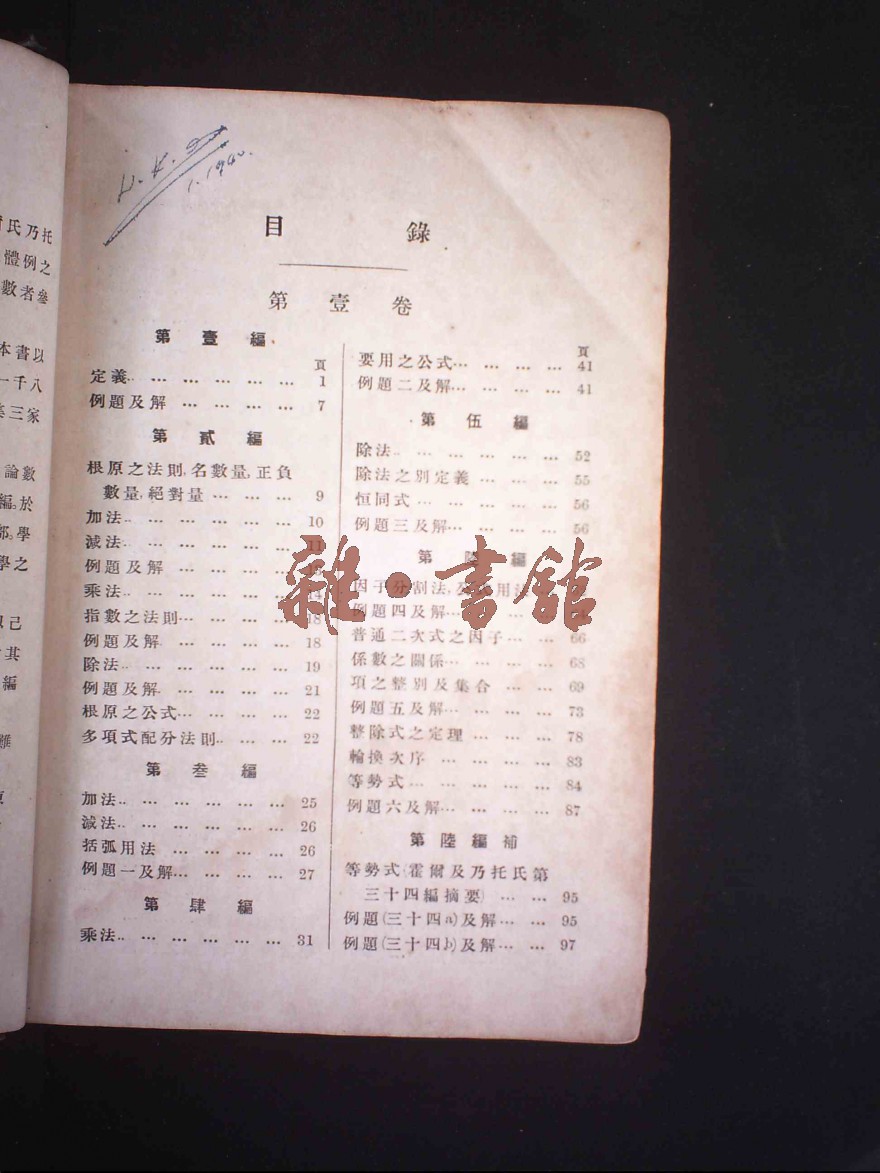 氏乃托
體例之
數者叅
本書以
一千八
三家
論數
編。於
學
學之
己
其
編
H. K.
1. 1940.
目錄
第壹卷
第壹編
頁
定義.. ... ... ... ... ... 1
例題及解 ... ... ... ... 7
第貳編
根原之法則,名數量,正負
數量,絕對量 ... ... ... 9
加法.. ... ... ... ... ... 10
減法.. ... ... ... ... ... 11
例題及解 ... ... ... ... 13
乘法.. ... ... ... ... ... 14
指數之法則... ... ... ... 18
例題及解. ... ... ... ... 18
除法.. ... ... ... ... ... 19
例題及解. ... ... ... ... 21
根原之公式... ... ... ... 22
多項式配分法則.. ... ... 22
第叁編
加法.. ... ... ... ... ... 25
減法.. ... ... ... ... ... 26
括弧用法 ... ... ... ... 26
例題一及解... ... ... ... 27
第肆編
乘法.. ... ... ... ... ... 31
頁
要用之公式... ... ... ... 41
例題二及解... ... ... ... 41
第伍編
除法.. ... ... ... ... ... 52
除法之別定義 ... ... ... 55
恒同式 ... ... ... ... ... 56
例題三及解... ... ... ... 56
第陸編
因子分割法,公式用法
例題四及解
普通二次式之因子... ... 66
係數之關係... ... ... ... 68
項之整別及集合 ... ... 69
例題五及解... ... ... ... 73
整除式之定理 ... ... ... 78
輪換次序 ... ... ... ... 83
等勢式 ... ... ... ... ... 84
例題六及解... ... ... ... 87
第陸編補
等勢式(霍爾及乃托氏第
三十四編摘要) ... ... 95
例題(三十四a)及解... ... 95
例題(三十四b)及解... ... 97
雜·書館